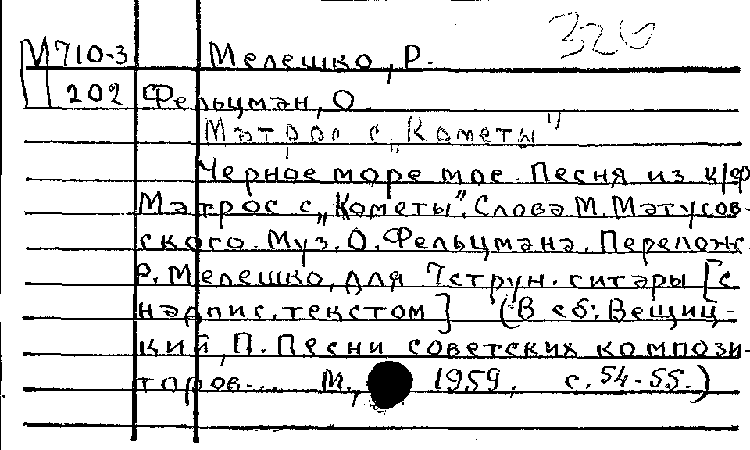 320
М710-3 Мелешко, Р.
202 Фельцман, О.
Матрос с „Кометы"
Черное море мое. Песня из к/ф
Матрос с „Кометы". Слова М. Матусов-
ского. Муз. О. Фельцмана. Перелож.
Р. Мелешко, для 7струн. гитары [с
надпис. текстом] (В сб: Вещиц-
кий, П. Песни советских компози-
торов... М., 1959, с. 54-55.)